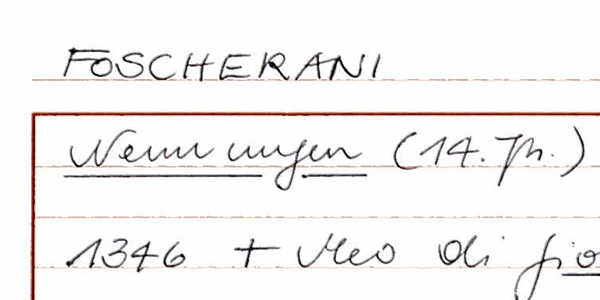 FOSCHERANI
Nennungen (14. Jh.)
1346 + Meo di